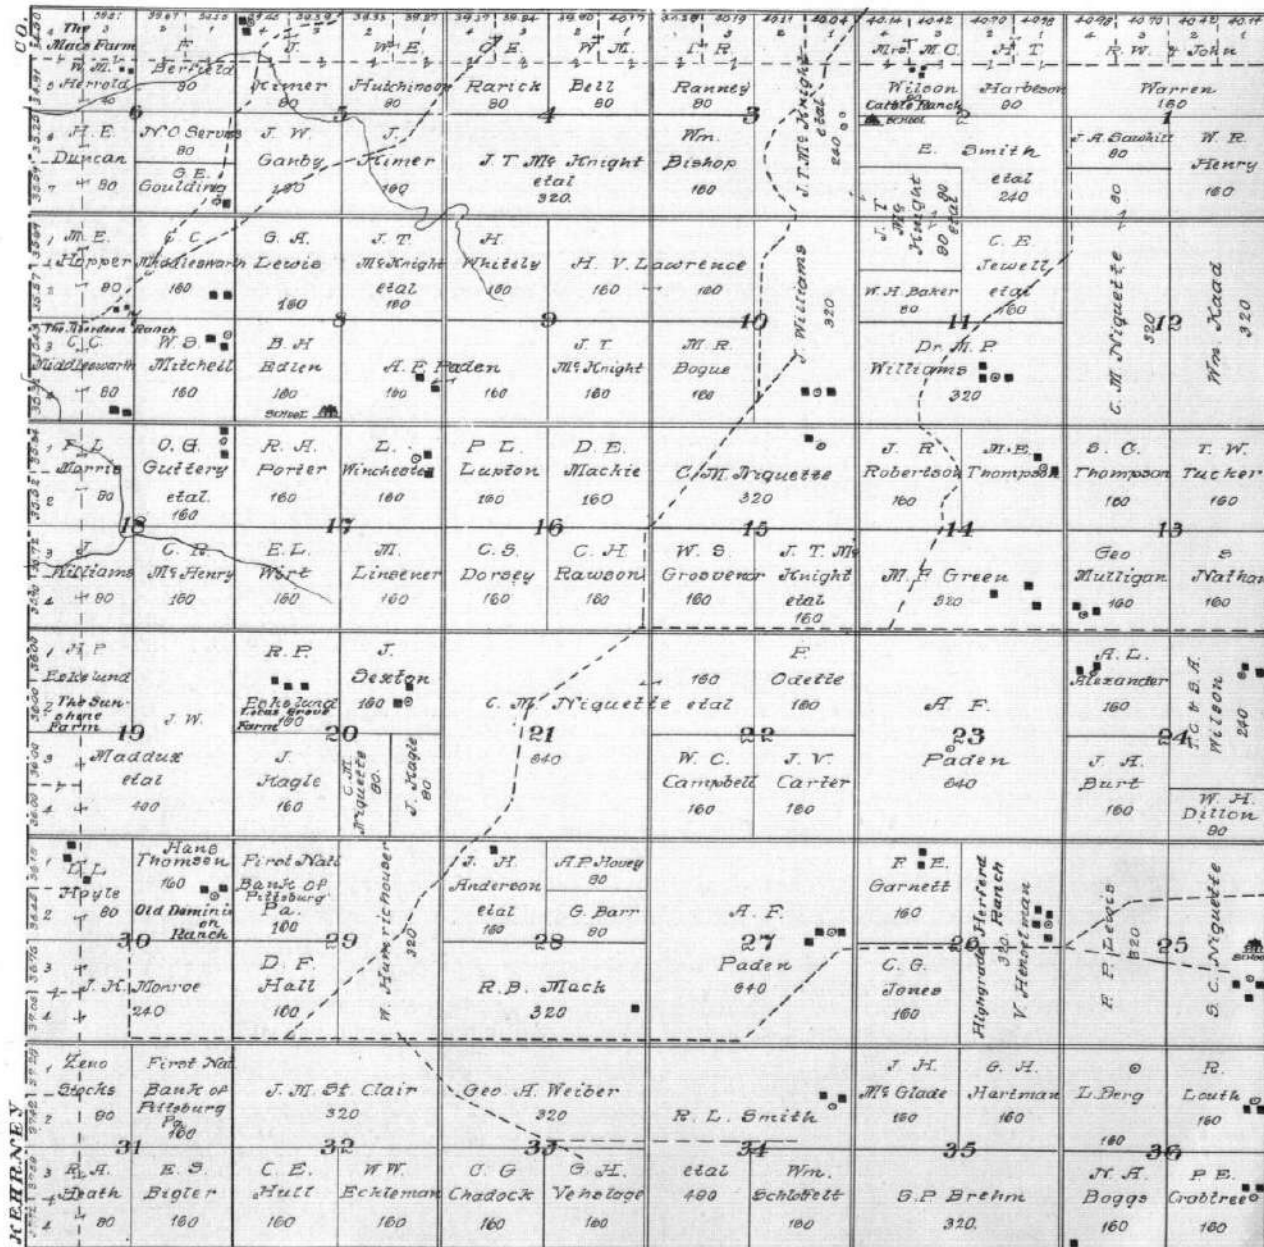 CO.
KEARNEY
The
Mac's Farm
W. M.
Herrold
40
F.
Berfield
80
J.
Kimer
80
W. E.
Hutchinson
80
C. E.
Rarick
80
W. M.
Bell
80
I. R.
Ranney
80
J. T. McKnight
etal
240
Mrs. M. C.
Wilson
Cattle Ranch
SCHOOL
H. T.
Harbeson
80
R. W. & John
Warren
160
6
5
4
3
2
1
H. E.
Duncan
80
N. O. Servos
80
G. E.
Goulding
J. W.
Ganby
160
J.
Kimer
160
J. T. McKnight
etal
320.
Wm.
Bishop
160
E. Smith
etal
240
J. T.
McKnight
etal
80
J. A. Sawhill
80
W. R.
Henry
160
M. E.
Hopper
80
C. C.
Middleswarth
160
G. A.
Lewis
160
J. T.
McKnight
etal
160
H.
Whitely
160
H. V. Lawrence
160
160
J. Williams
320
W. H. Baker
80
C. E.
Jewell
etal
160
C. M. Niquette
320
80
Wm. Kaad
320
8
9
10
11
12
The Aberdeen Ranch
C. C.
Middleswarth
80
W. S.
Mitchell
160
B. H
Edlen
160
SCHOOL
A. F. Paden
160
J. T.
McKnight
160
M. R.
Bogue
160
Dr. M. P.
Williams
320
F. L
Morris
80
O. G.
Guttery
etal.
160
R. A.
Porter
160
L.
Winchester
160
P. L.
Lupton
160
D. E.
Mackie
160
C. M. Niquette
320
J. R
Robertson
160
M. E.
Thompson
S. C.
Thompson
160
T. W.
Tucker
160
18
17
16
15
14
13
J.
Williams
80
C. R.
McHenry
160
E. L.
Wirt
160
M.
Linsener
160
C. S.
Dorsey
160
C. H.
Rawson
160
W. S.
Grosvenor
160
J. T. Mc
Knight
etal
160
M. F. Green
320
Geo
Mulligan
160
S
Nathan
160
H. P.
Eskelund
The Sun-
shine
Farm
J. W.
Maddux
etal
400
R. P.
Eskelund
Locus Grove
Farm 160
J.
Sexton
160
C. M. Niquette etal
640
160
F.
Odette
160
A. F.
Paden
640
A. L.
Alexander
160
J. C. & B. A.
Wilson
240
19
20
21
22
23
24
J.
Kagle
160
C. M.
Niquette
80.
J. Kagle
80
W. C.
Campbell
160
J. V.
Carter
160
J. H.
Burt
160
W. H.
Dillon
80
L. L
Hoyle
80
Hans
Thomsen
160
Old Domini
on
Ranch
First Natl
Bank of
Pittsburg
Pa.
160
W. Humrichouser
320
J. H.
Anderson
etal
160
A. P. Hovey
80
G. Barr
80
A. F.
Paden
640
F. E.
Garnett
160
Highgrade Herferd
Ranch
320
V. Henselman
F. P. Lewis
320
S. C. Niquette
SCHOOL
30
29
28
27
26
25
J. H. Monroe
240
D. F.
Hall
160
R. B. Mack
320
C. G.
Jones
160
Zeno
Stocks
80
First Nat
Bank of
Pittsburg
Pa.
160
J. M. St Clair
320
Geo. A. Weiber
320
R. L. Smith
etal
480
J. H.
McGlade
160
G. H.
Hartman
160
L. Berg
160
R.
Louth
160
31
32
33
34
35
36
R. A.
Heath
80
E. S.
Bigler
160
C. E.
Hull
160
W W.
Eckleman
160
C. G
Chadock
160
G. H.
Vehslage
160
Wm.
Schlofelt
160
S. P. Brehm
320.
N. A.
Boggs
160
P. E.
Crabtree
160